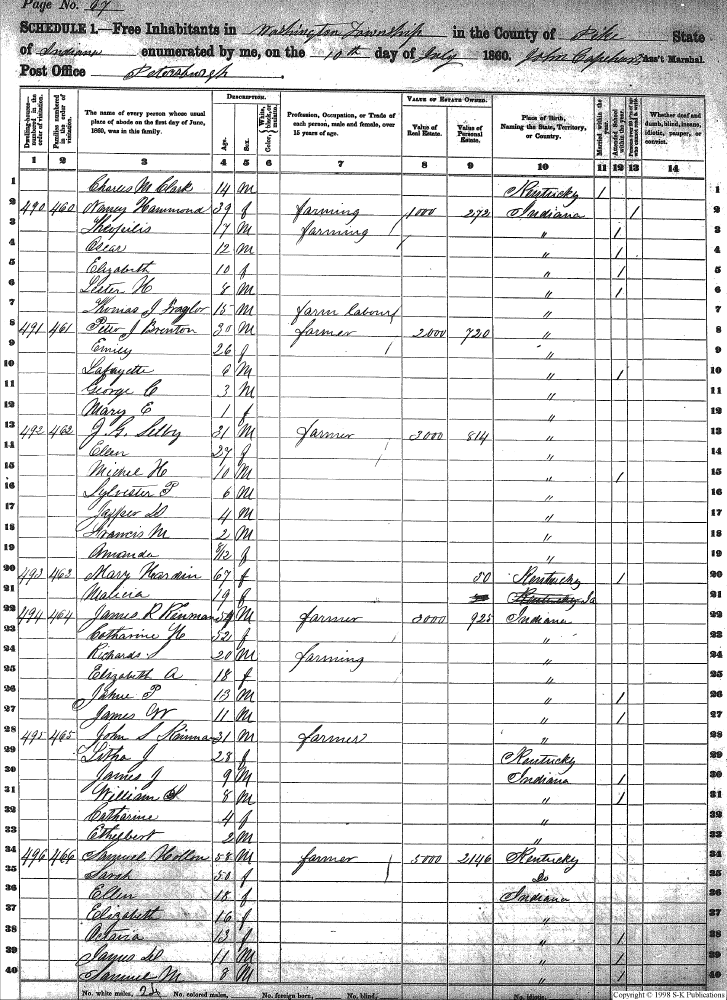 Page No. 67
SCHEDULE 1.—Free Inhabitants in Washington Township in the County of Pike State
of Indiana enumerated by me, on the 10th day of July 1860. John Capehart Ass't Marshal.
Post Office Petersburgh.
Dwelling-houses— numbered in the order of visitation.
Families numbered in the order of visitation.
The name of every person whose usual place of abode on the first day of June, 1860, was in this family.
DESCRIPTION.
Age.
Sex.
Color, White, black, or mulatto.
Profession, Occupation, or Trade of each person, male and female, over 15 years of age.
VALUE OF ESTATE OWNED.
Value of Real Estate.
Value of Personal Estate.
Place of Birth, Naming the State, Territory, or Country.
Married within the year.
Attended School within the year.
Whether deaf and dumb, blind, insane, idiotic, pauper, or convict.
1 2 3 4 5 6 7 8 9 10 11 12 13 14
1 Charles M Clark 14 M Kentucky 1 1
2 490 460 Nancy Hammond 39 f farming 1000 272 Indiana / 2
3 Theophilis 17 M farming " / 3
4 Oscar 12 M " / 4
5 Elizabeth 10 f " / 5
6 Lester H 8 M " / 6
7 Thomas J 15 M farm labour " 7
8 491 461 Peter J Brenton 30 M farmer 2000 720 " 8
9 Emily 26 f " 9
10 Lafayette 6 M " / 10
11 George C 3 M " 11
12 Mary E 1 f " 12
13 492 462 J. G. Selby 31 M farmer 3000 814 " 13
14 Elen 27 f " 14
15 H 10 M " / 15
16 Sylvester P 6 M " 16
17 Jasper 4 M " 17
18 Francis M 2 M " 18
19 Amanda 8/12 f " 19
20 493 463 Mary Hardin 67 f 50 Kentucky / 20
21 Malicia 19 f Kentucky Ia 21
22 494 464 James R Kinman M farmer 3000 925 Indiana 22
23 Catharine H 52 f " 23
24 Richard S 20 M farming " 24
25 Elizabeth A 18 f " 25
26 P 13 M " / 26
27 James W 11 M " / 27
28 495 465 John S Kinman 31 M farmer " 28
29 Litha J 28 f Kentucky 29
30 James J 9 M Indiana / 30
31 William S 8 M " / 31
32 Catharine 4 f " 32
33 Ethelbert 2 M " 33
34 496 466 Samuel Hollon 58 M farmer 5000 2146 Kentucky 34
35 Sarah 50 f Do 35
36 Ellen 18 f Indiana 36
37 Elizabeth 16 f " 37
38 13 f " / 38
39 James 11 M " / 39
40 Samuel M 8 M " / 40
No. white males, 24 No. colored males, No. foreign born, No. blind, No. idiotic,
Copyright © 1998 S-K Publications